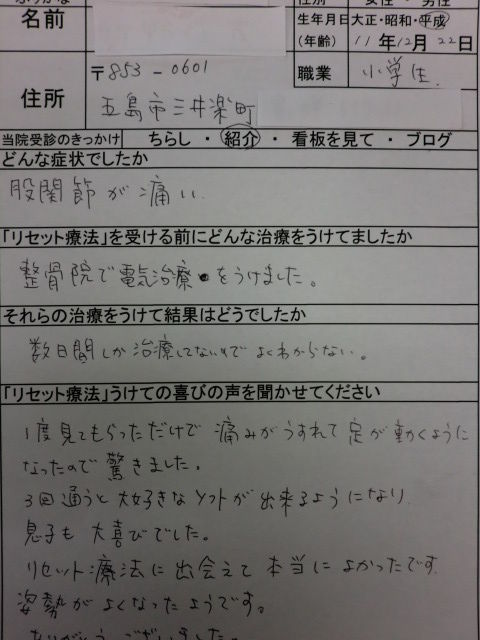 名前
生年月日 大正・昭和・平成
(年齢) 11年12月22日
〒853-0601
職業 小学生
住所 五島市三井楽町
当院受診のきっかけ ちらし ・ 紹介 ・ 看板を見て ・ ブログ
どんな症状でしたか
股関節が痛い
「リセット療法」を受ける前にどんな治療をうけてましたか
整骨院で電気治療をうけました。
それらの治療をうけて結果はどうでしたか
数日間しか治療してないのでよくわからない。
「リセット療法」うけての喜びの声を聞かせてください
1度見てもらっただけで痛みがうすれて足が動くように
なったので驚きました。
3回通うと大好きなソフトが出来るようになり
息子も大喜びでした。
リセット療法に出会えて本当によかったです
姿勢がよくなったようです。
ありがとうございました。